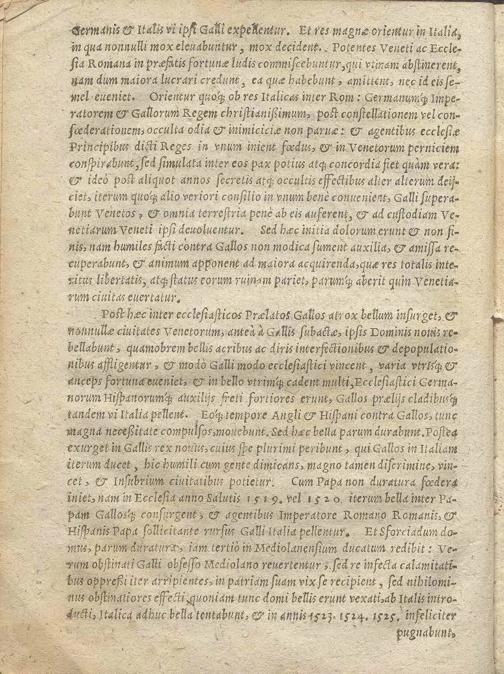 Germanis & Italis vi ipsi Galli expellentur. Et res magnæ orientur in Italia,
in qua nonnulli mox eleuabuntur, mox decident. Potentes Veneti ac Eccle-
sia Romana in præfatis fortunæ ludis commiscebuntur, qui vtinam abstinerent,
nam dum maiora lucrari credunt, ea quæ habebunt, amittent, nec id eis se-
mel eueniet. Orientur quoq; ob res Italicas inter Rom: Germanumq; Impe-
ratorem & Gallorum Regem christianißimum, post constellationem vel con-
fœderationem, occulta odia & inimiciciæ non paruæ: & agentibus ecclesiæ
Principibus dicti Reges in vnum inient fœdus, & in Venetorum perniciem
conspirabunt, sed simulata inter eos pax potius atq; concordia fiet quàm vera:
& ideò post aliquot annos secretis atq; occultis effectibus alter alterum deij-
ciet, iterum quoq; alio veriori consilio in vnum bene conuenient, Galli supera-
bunt Venetos, & omnia terrestria penè ab eis auferent, & ad custodiam Ve-
netiarum Veneti ipsi deuoluentur. Sed hæc initia dolorum erunt & non fi-
nis, nam humiles facti contra Gallos non modica sument auxilia, & amissa re-
cuperabunt, & animum apponent ad maiora acquirenda, quæ res totalis inte-
ritus libertatis, atq; status eorum ruinam pariet, parumq; aberit quin Venetia-
rum ciuitas euertatur.
Post hæc inter ecclesiasticos Prælatos Gallos atrox bellum insurget, &
nonnullæ ciuitates Venetorum, anteà à Gallis subactæ, ipsis Dominis nouis re-
bellabunt, quamobrem bellis acribus ac diris interfectionibus & depopulatio-
nibus affligentur, & modò Galli modo ecclesiastici vincent, varia vtrisq; &
anceps fortuna eueniet, & in bello vtrimq; cadent multi, Ecclesiastici Germa-
norum Hispanorumq; auxilijs freti fortiores erunt, Gallos prælijs cladibusq;
tandem vi Italia pellent. Eoq; tempore Angli & Hispani contra Gallos, tunc
magna necessitate compulsos, mouebunt. Sed hæc bella parum durabunt. Postea
exurget in Gallis rex nouus, cuius spe plurimi peribunt, qui Gallos in Italiam
iterum ducet, hic humili cum gente dimicans, magno tamen discrimine, vin-
cet, & Insubrium ciuitatibus potietur. Cum Papa non duratura fœdera
iniet, nam in Ecclesia anno Salutis 1519. vel 1520. iterum bella inter Pa-
pam Gallosq; consurgent, & agentibus Imperatore Romano Romanis, &
Hispanis Papa sollicitante rursus Galli Italia pellentur. Et Sforciadum do-
mus, parum duratura, iam tertiò in Mediolanensium ducatum redibit: Ve-
rum obstinati Galli obsesso Mediolano reuertentur, sed re infecta calamitati-
bus oppreßi iter arripientes, in patriam suam vix se recipient, sed nihilomi-
nus obstinatiores effecti, quoniam tunc domi bellis erunt vexati, ab Italis intro-
ducti, Italica adhuc bella tentabunt, & in annis 1523. 1524. 1525. infeliciter
pugnabunt,